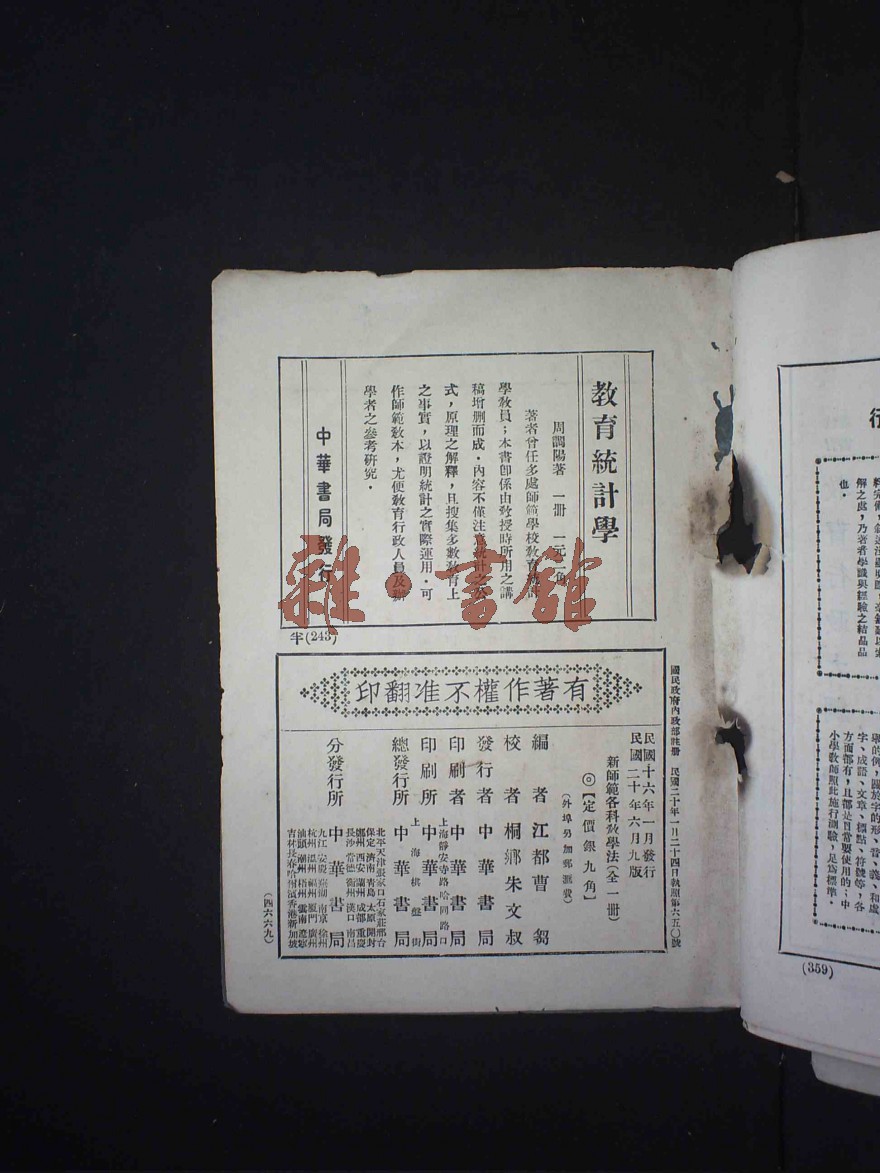 教育統計學
周調陽著　一冊　一元二角
著者曾任多處師範學校教育統計
學教員；本書卽係由敎授時所用之講
稿增删而成．內容不僅注意統計之公
式，原理之解釋，且搜集多數敎育上
之事實，以證明統計之實際運用．可
作師範敎本，尤便敎育行政人員及辦
學者之參考研究．
中華書局發行
半(243)
雜·書館
有著作權不准翻印
國民政府內政部註冊　民國二十年一月二十四日執照第六五〇號
民國十六年一月發行
民國二十年六月九版
新師範各科敎學法（全一冊）
◎【定價銀九角】
（外埠另加郵匯費）
編者　江都曹芻
校者　桐鄉朱文叔
發行者　中華書局
印刷者　中華書局
上海靜安寺路哈同路口
印刷所　中華書局
上海棋盤街
總發行所　中華書局
分發行所　中華書局
北平天津張家口石家莊邢台
保定濟南靑島太原開封
鄭州西安蘭州成都重慶
長沙常德衡州漢口南昌
九江安慶蕪湖南京徐州
杭州溫州福州廈門廣州
汕頭潮州梧州雲南遼寧
吉林長春哈爾濱香港新加坡
（四六六九）
行
解之處，乃著者學識與經驗之結晶品
也．
舉的例，關於字的形、音、義、和處
字、成語、文章、標點、符號等，各
方面都有，且都是日常要使用的；中
小學敎師照此施行測驗，足爲標準．
(359)